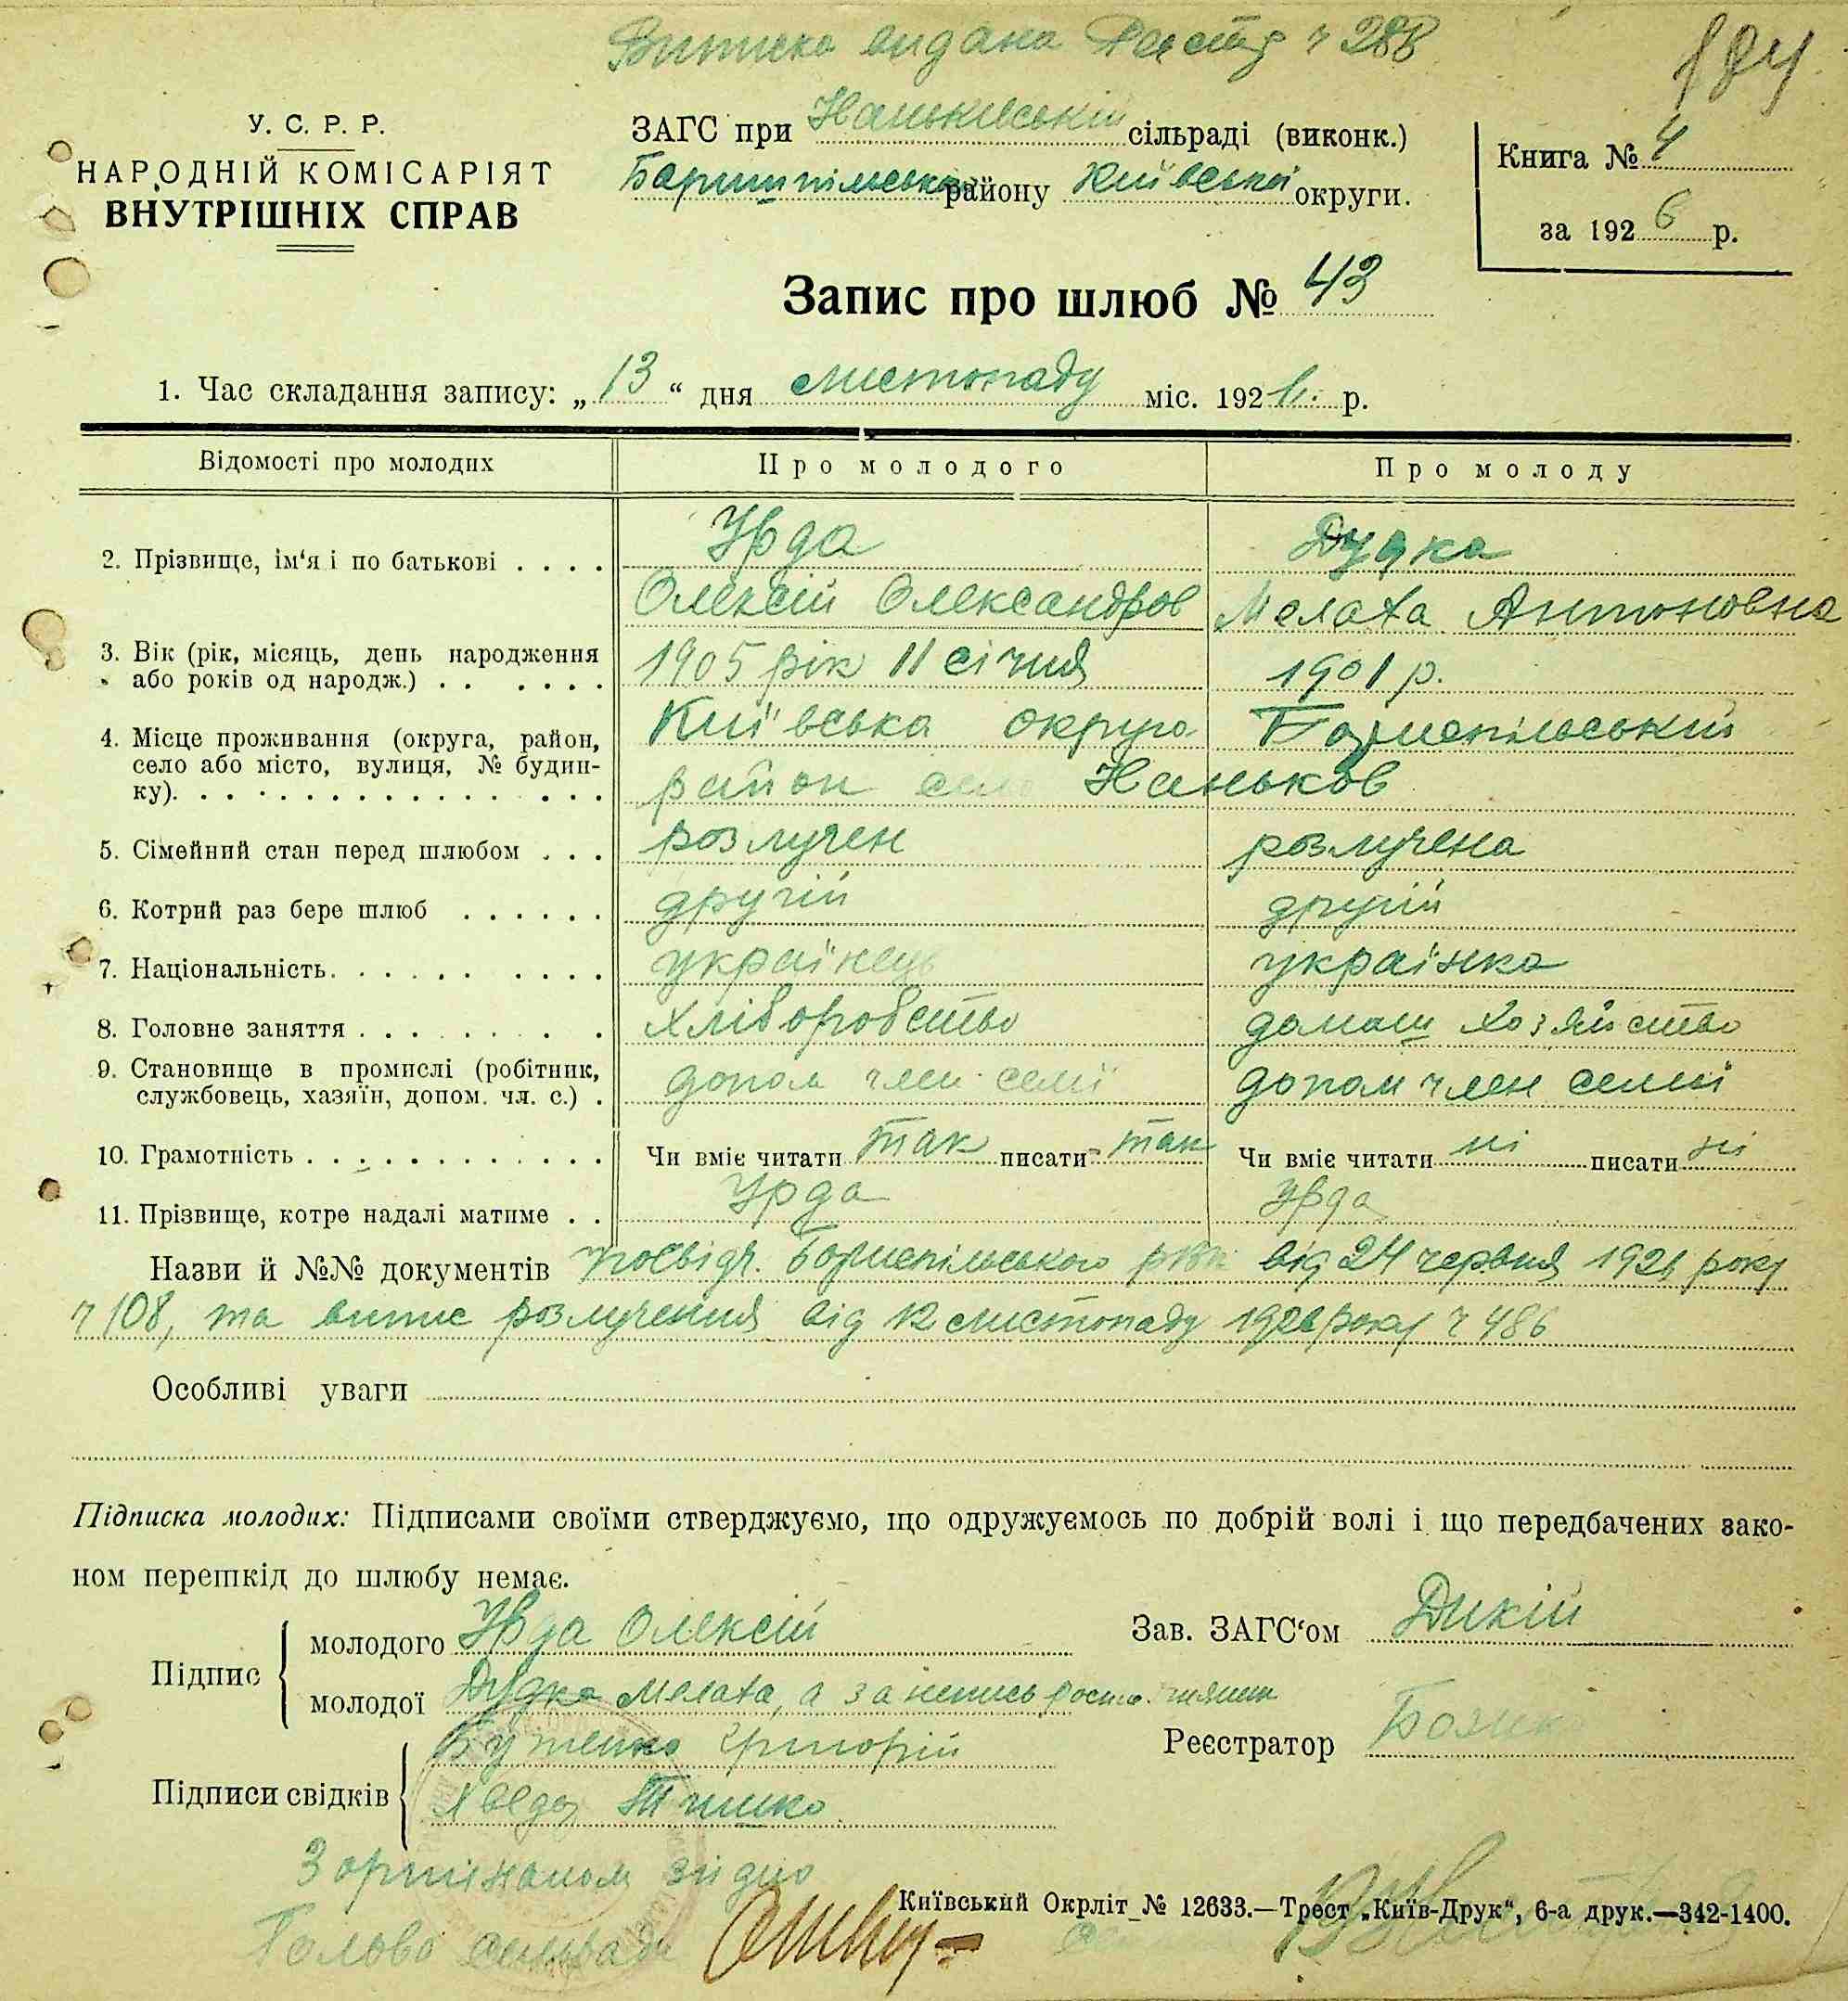 Виписка видана Реєстр ч 288
184
У. С. Р. Р.
НАРОДНІЙ КОМІСАРІЯТ
ВНУТРІШНІХ СПРАВ
ЗАГС при Наньківській сільраді (виконк.)
району Київської округи.
Книга № 4
за 1926 р.
Запис про шлюб № 43
1. Час складання запису: „13“ дня листопаду міс. 192 р.
Відомості про молодих
Про молодого
Про молоду
2. Прізвище, ім‘я і по батькові . . . .
Урда
Дудка
Олексій Олександров
Мелаха Антоновна
3. Вік (рік, місяць, день народження
або років од народж.) . . . . . .
1905 рік 11 січня
1901 р.
4. Місце проживання (округа, район,
село або місто, вулиця, № будин-
ку). . . . . . . . . . . . .
Київська округа Бориспільський
район село Наньков
5. Сімейний стан перед шлюбом . . .
розлучен
розлучена
6. Котрий раз бере шлюб . . . . . .
другій
другій
7. Національність. . . . . . . . . .
українець
українка
8. Головне заняття . . . . . . . .
хліборобство
домаш хозяйство
9. Становище в промислі (робітник,
службовець, хазяїн, допом. чл. с.) .
допом член семії
допом член семії
10. Грамотність . . . . . . . . . . . .
Чи вміє читати так писати так
Чи вміє читати ні писати ні
11. Прізвище, котре надалі матиме . .
Урда
Урда
Назви й №№ документів посвідч. Бориспільського рвк від 24 червня 1926 року
ч 108, та випис розлучення від 12 листопаду 1926 року ч 486
Особливі уваги
Підписка молодих: Підписами своїми стверджуємо, що одружуємось по добрій волі і що передбачених зако-
ном перешкід до шлюбу немає.
Підпис
молодого Урда Олексій
молодої Дудка Мелаха, а за непись
Зав. ЗАГС‘ом Дикій
Реєстратор
Підписи свідків
Бутенко Григорій
Тишко
З оригіналом згідно
Голова сільради
Київський Окрліт № 12633.—Трест „Київ-Друк“, 6-а друк.—342-1400.